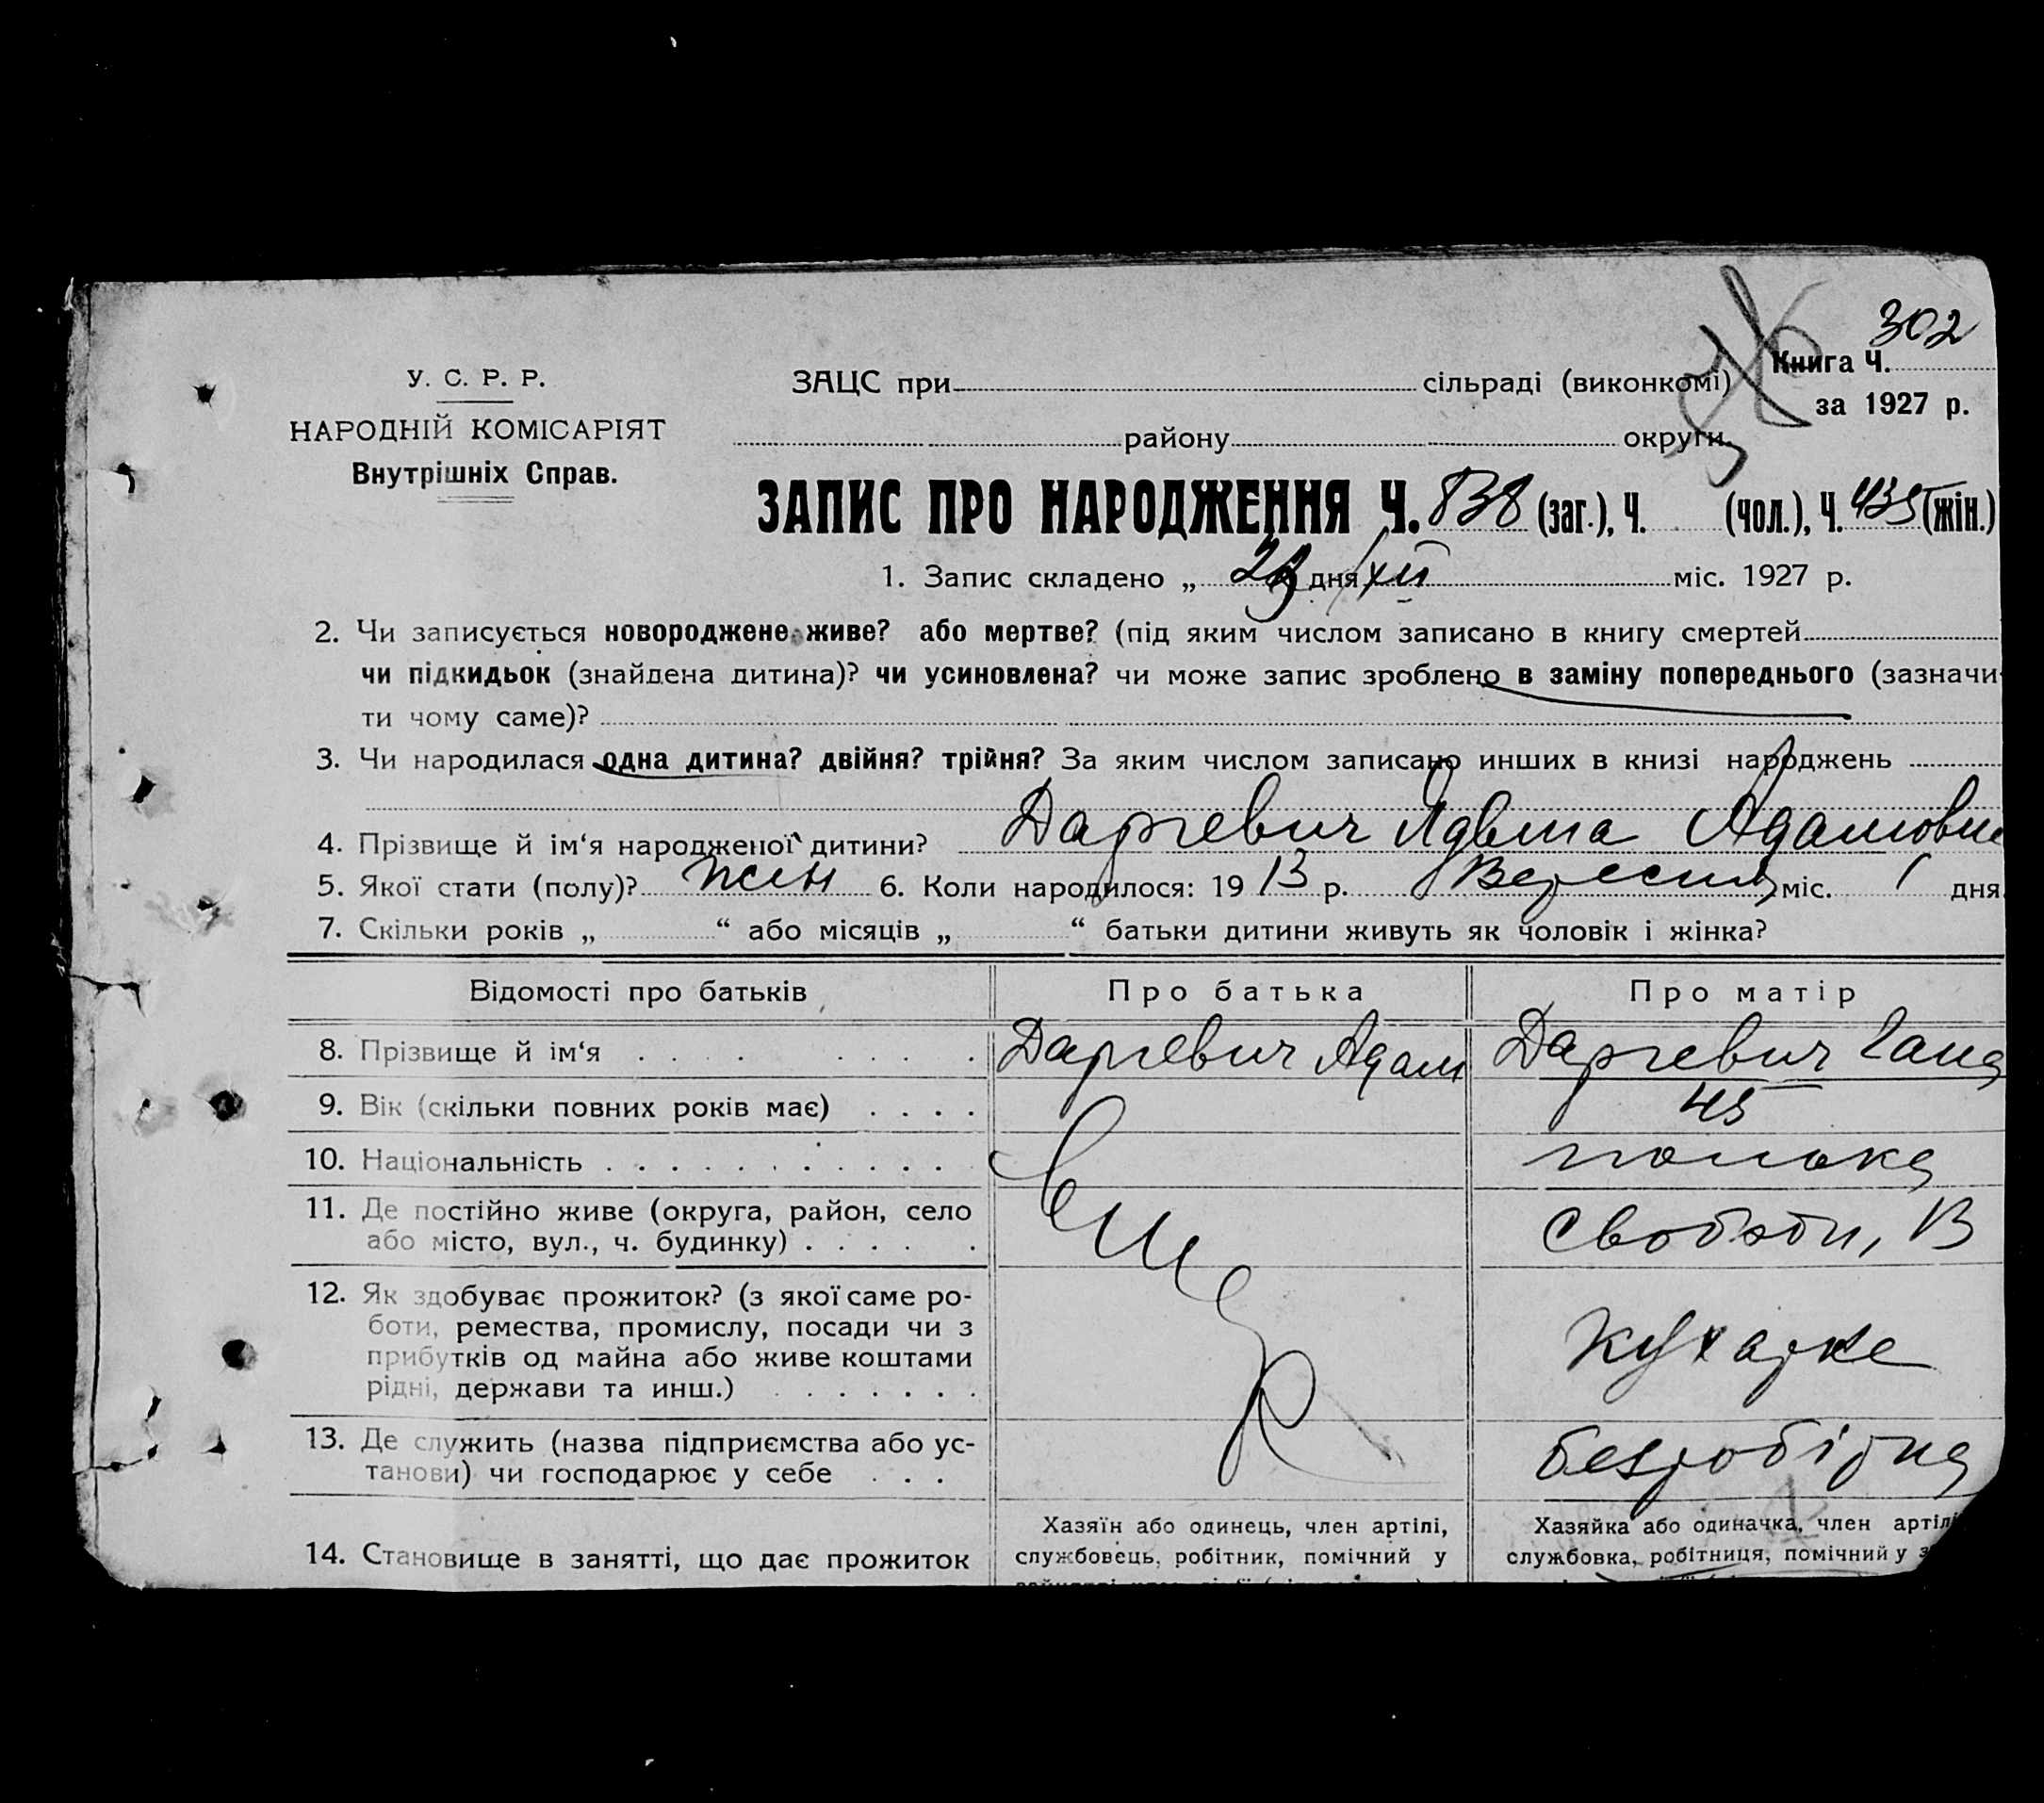 302
У. С. Р. Р.
НАРОДНІЙ КОМІСАРІЯТ
Внутрішніх Справ.
ЗАЦС при сільраді (виконкомі)
району округи
Книга Ч.
за 1927 р.
ЗАПИС ПРО НАРОДЖЕННЯ Ч. 838 (заг.), Ч. (чол.), Ч. 435 (жін.)
1. Запис складено „ дня XII міс. 1927 р.
2. Чи записується новороджене живе? або мертве? (під яким числом записано в книгу смертей
чи підкидьок (знайдена дитина)? чи усиновлена? чи може запис зроблено в заміну попереднього (зазначи-
ти чому саме)?
3. Чи народилася одна дитина? двійня? трійня? За яким числом записано инших в книзі народжень
4. Прізвище й ім‘я народженої дитини? Даргевич Ядвига Адамовна
5. Якої стати (полу)? жен 6. Коли народилося: 19 13 р. Вересня міс. 1 дня
7. Скільки років „ “ або місяців „ “ батьки дитини живуть як чоловік і жінка?
Відомості про батьків Про батька Про матір
8. Прізвище й ім‘я Даргевич Адам Даргевич Гана
9. Вік (скільки повних років має) 45
10. Національність полька
11. Де постійно живе (округа, район, село
або місто, вул., ч. будинку) Свободи, 13
12. Як здобуває прожиток? (з якої саме ро-
боти, ремества, промислу, посади чи з
прибутків од майна або живе коштами
рідні, держави та инш.) Кухарка
13. Де служить (назва підприємства або ус-
танови) чи господарює у себе безробітна
14. Становище в занятті, що дає прожиток
Хазяїн або одинець, член артілі,
службовець, робітник, помічний у
Хазяйка або одиначка, член артілі
службовка, робітниця, помічний у